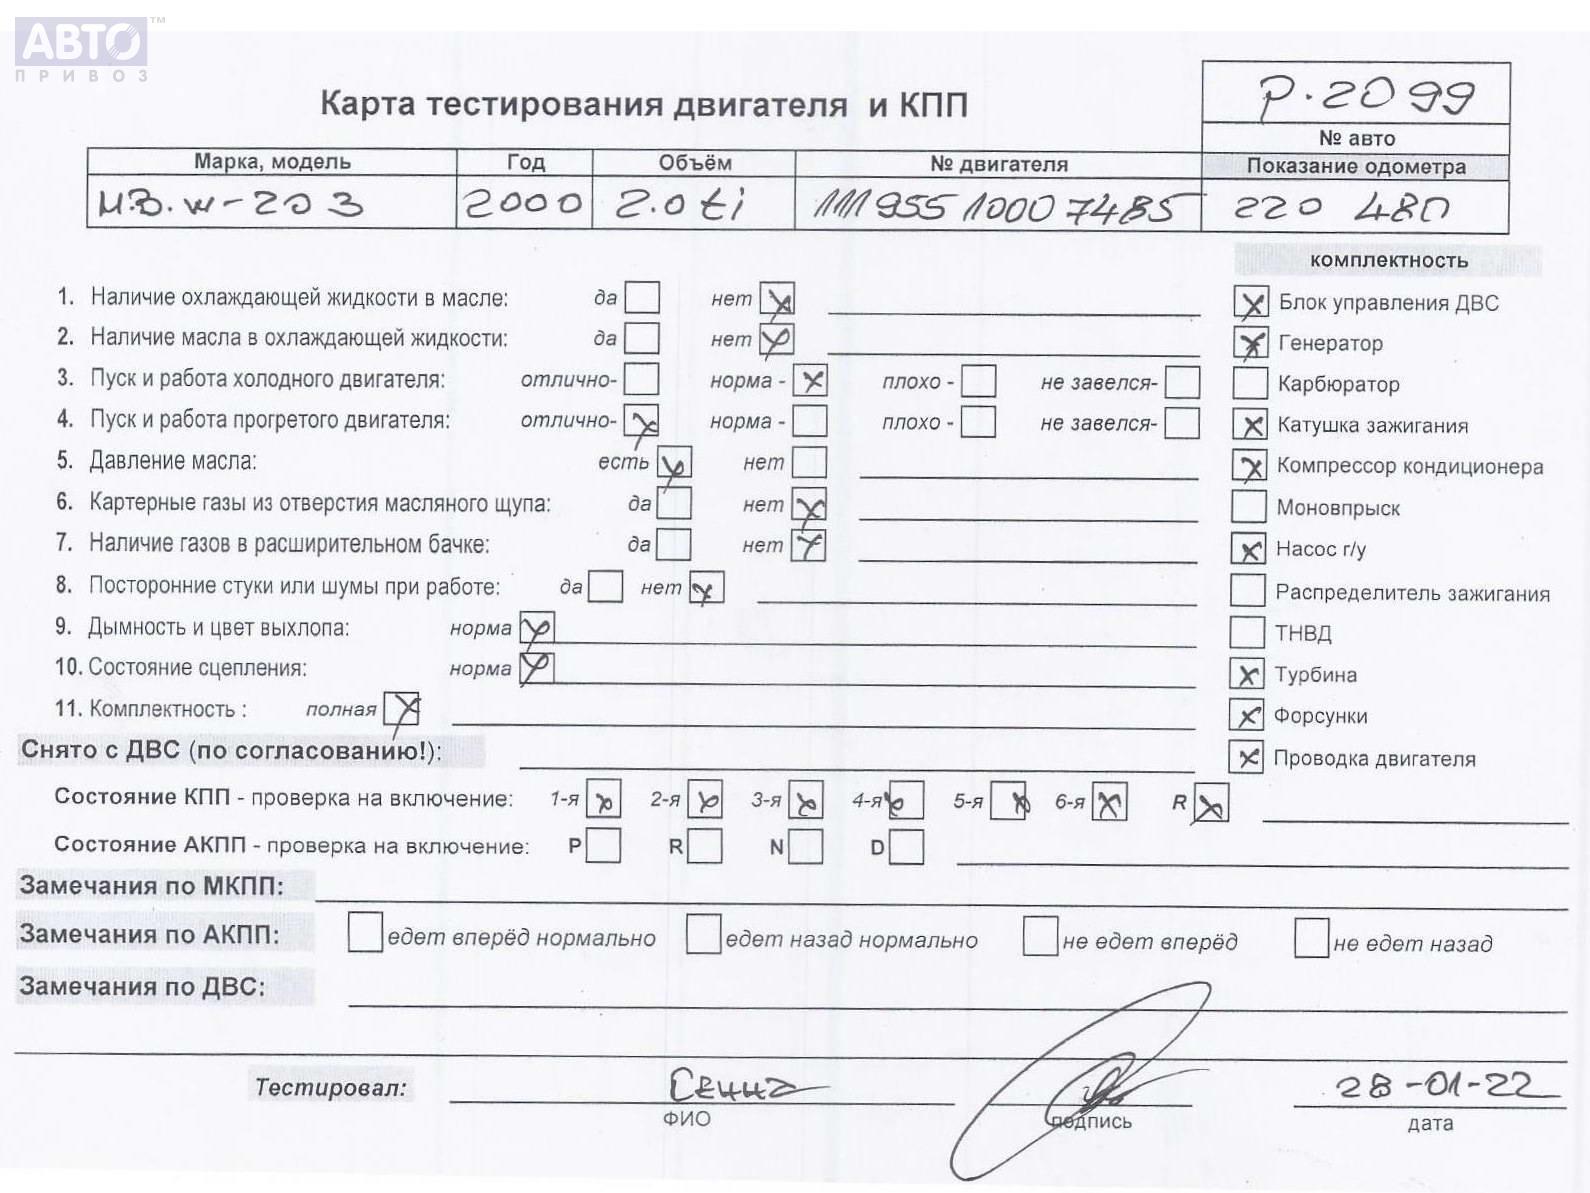 АВТО™
ПРИВОЗ
Карта тестирования двигателя и КПП
р.2099
№ авто
Марка, модель Год Объём № двигателя Показание одометра
М.В.w-203 2000 2.0 ti 11195510007485 220 480
комплектность
1. Наличие охлаждающей жидкости в масле: да нет Блок управления ДВС
2. Наличие масла в охлаждающей жидкости: да нет Генератор
3. Пуск и работа холодного двигателя: отлично- норма - плохо - не завелся- Карбюратор
4. Пуск и работа прогретого двигателя: отлично- норма - плохо - не завелся- Катушка зажигания
5. Давление масла: есть нет Компрессор кондиционера
6. Картерные газы из отверстия масляного щупа: да нет Моновпрыск
7. Наличие газов в расширительном бачке: да нет Насос г/у
8. Посторонние стуки или шумы при работе: да нет Распределитель зажигания
9. Дымность и цвет выхлопа: норма ТНВД
10. Состояние сцепления: норма Турбина
11. Комплектность : полная Форсунки
Снято с ДВС (по согласованию!): Проводка двигателя
Состояние КПП - проверка на включение: 1-я 2-я 3-я 4-я 5-я 6-я R
Состояние АКПП - проверка на включение: P R N D
Замечания по МКПП:
Замечания по АКПП: едет вперёд нормально едет назад нормально не едет вперёд не едет назад
Замечания по ДВС:
Тестировал: 28-01-22
ФИО подпись дата